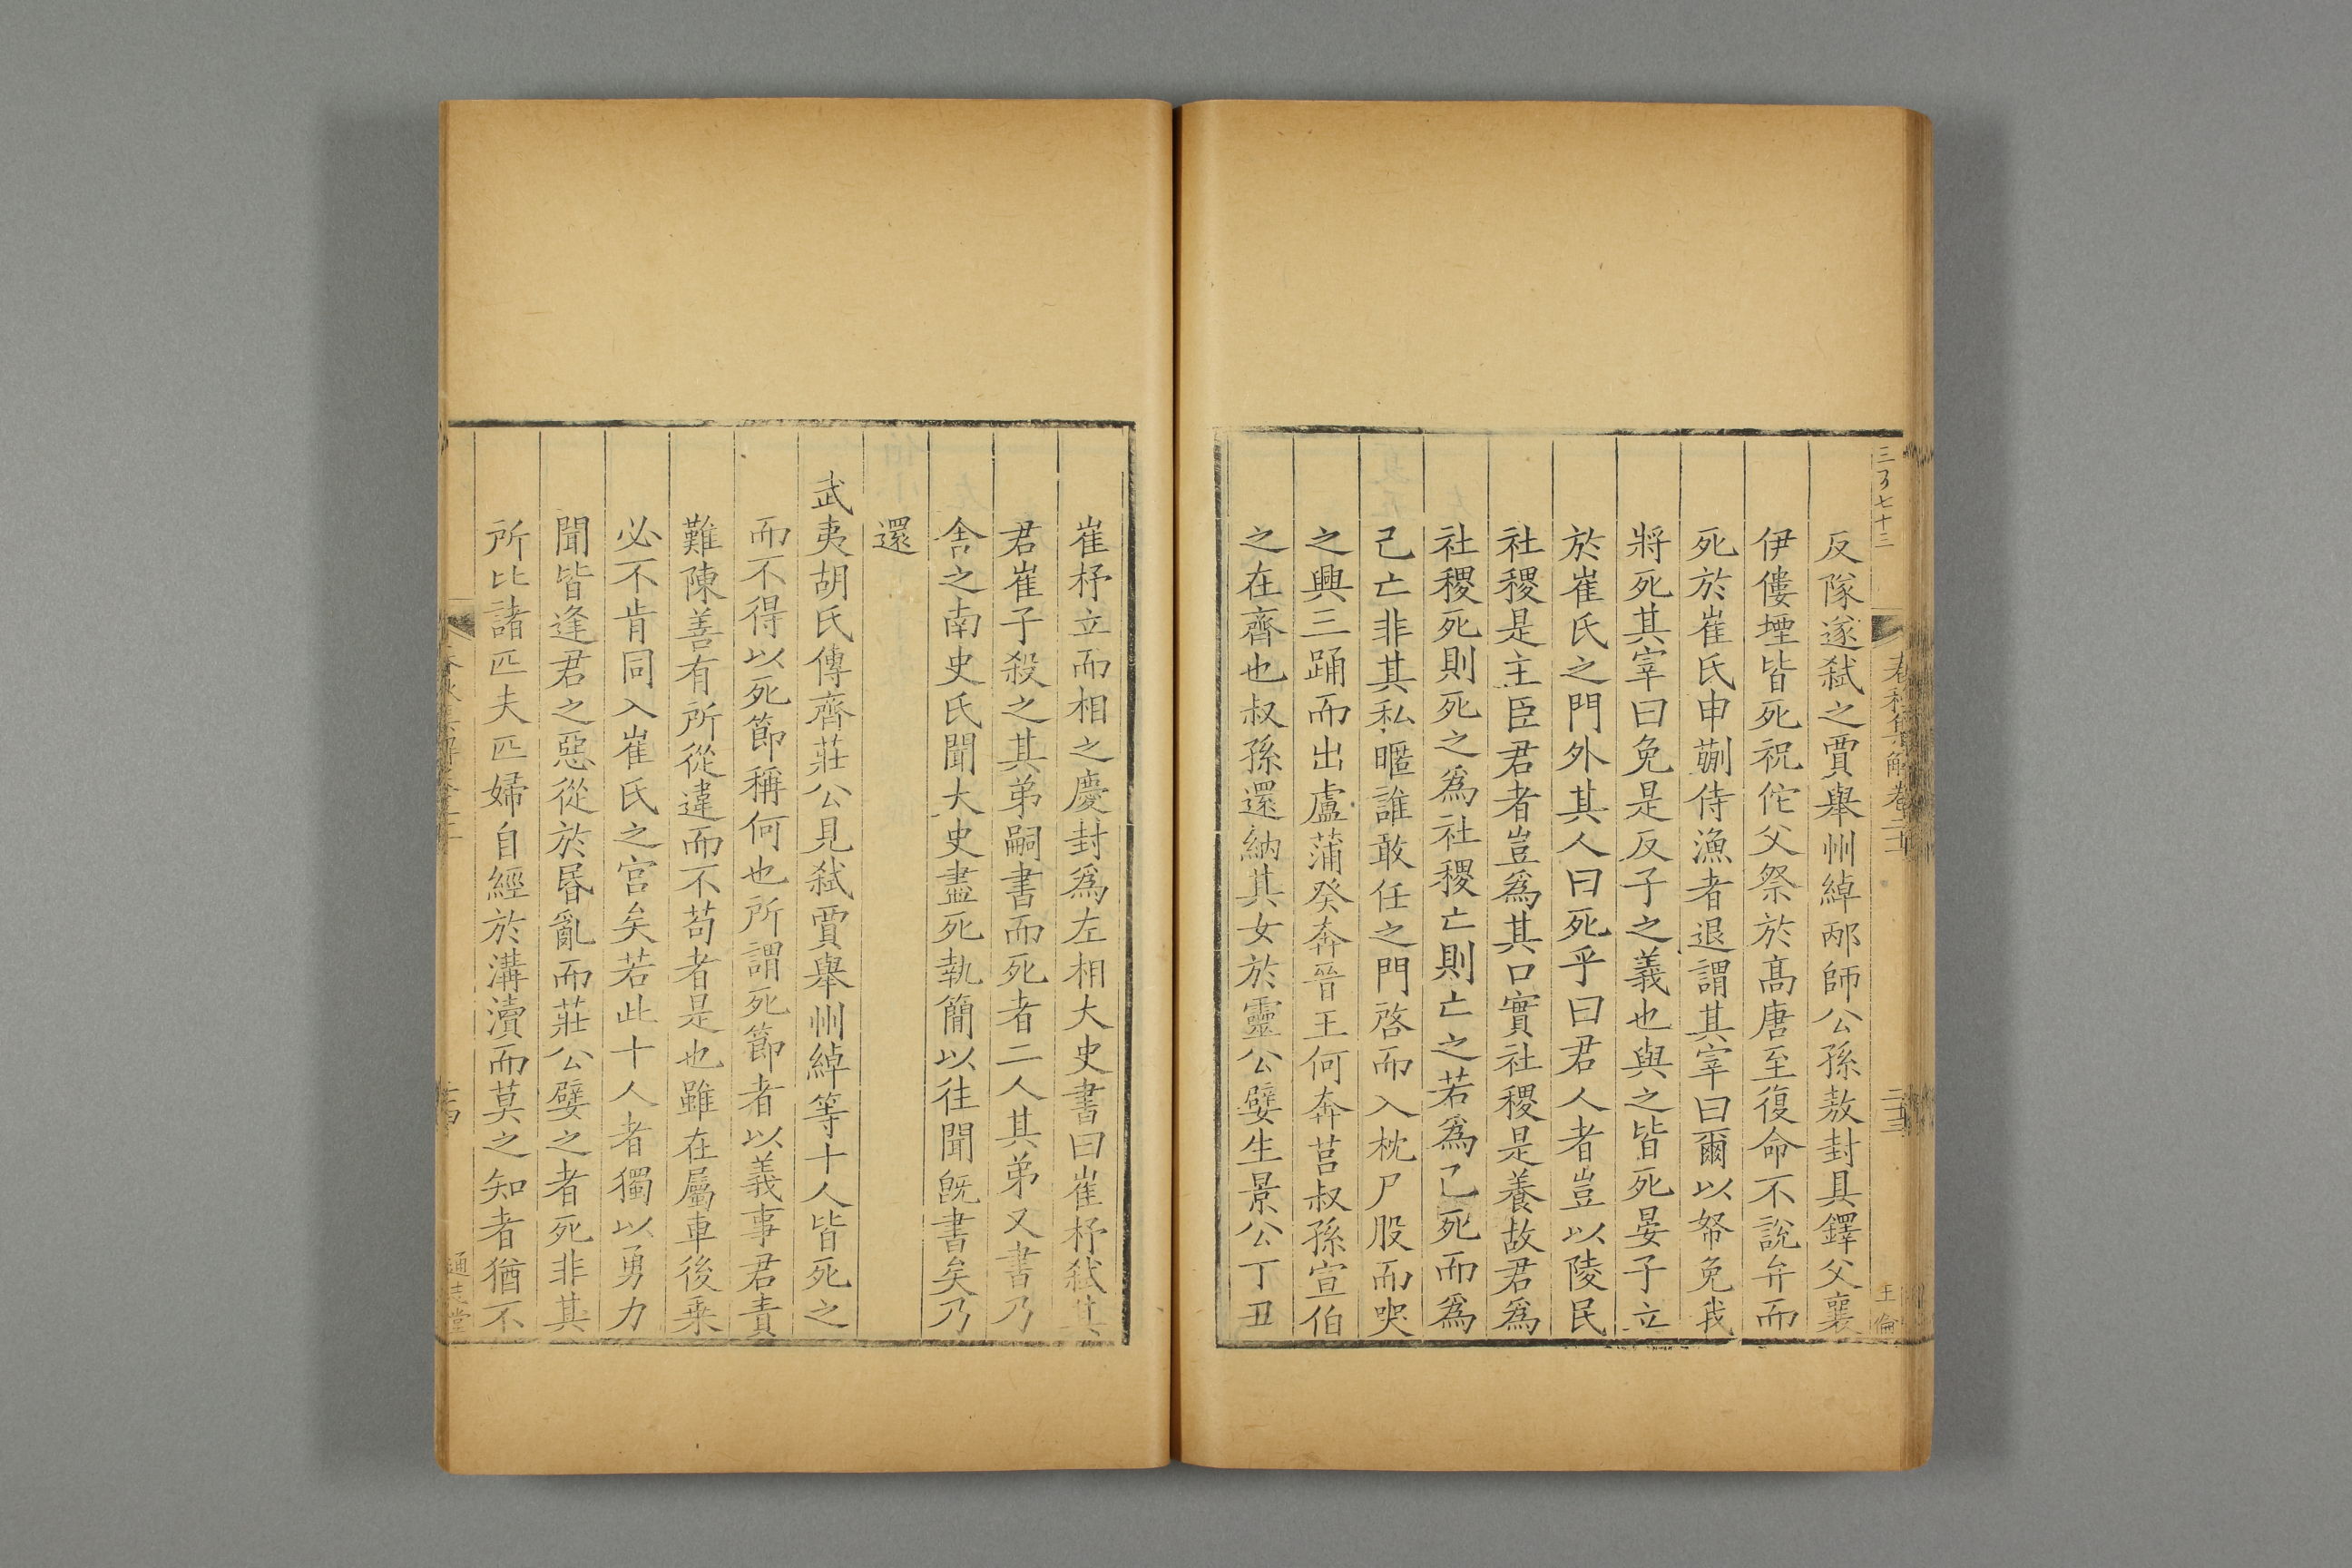 三百七十三
春秋集解卷二十
王倫
反隊遂弒之賈舉州綽邴師公孫敖封具鐸父襄
伊僂堙皆死祝佗父祭於髙唐至復命不說弁而
死於崔氏申蒯侍漁者退謂其宰曰爾以帑免我
將死其宰曰免是反子之義也與之皆死晏子立
於崔氏之門外其人曰死乎曰君人者豈以陵民
社稷是主臣君者豈爲其口實社稷是養故君爲
社稷死則死之爲社稷亡則亡之若爲己死而爲
己亡非其私暱誰敢任之門啓而入枕尸股而哭
之興三踊而出盧蒲癸奔晉王何奔莒叔孫宣伯
之在齊也叔孫還納其女於靈公嬖生景公丁丑
崔杼立而相之慶封爲左相大史書曰崔杼弒其
君崔子殺之其弟嗣書而死者二人其弟又書乃
舍之南史氏聞大史盡死執簡以往聞旣書矣乃
還
武夷胡氏傳齊莊公見弒賈舉州綽等十人皆死之
而不得以死節稱何也所謂死節者以義事君責
難陳善有所從違而不苟者是也雖在屬車後乘
必不肯同入崔氏之宮矣若此十人者獨以勇力
聞皆逢君之惡從於昬亂而莊公嬖之者死非其
所比諸匹夫匹婦自經於溝瀆而莫之知者猶不
通志堂